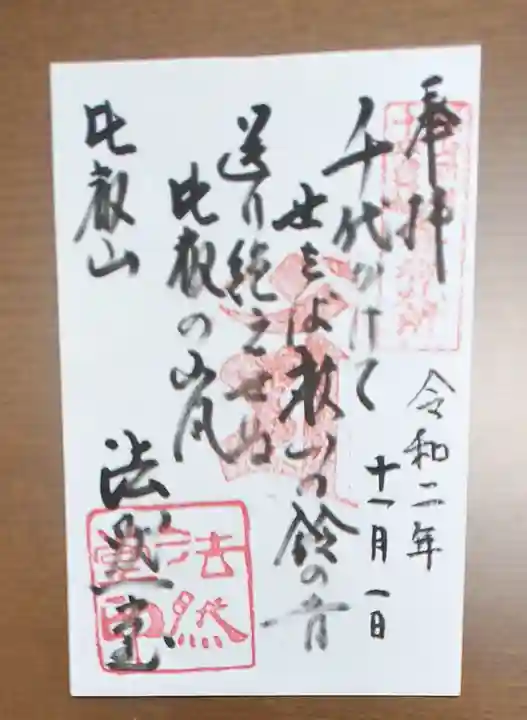 奉拝
令和二年
十一月一日
千代かけて
世をば救いの鈴の音
送り絶えせぬ
比叡の山風
比叡山
法然堂
法然
堂印